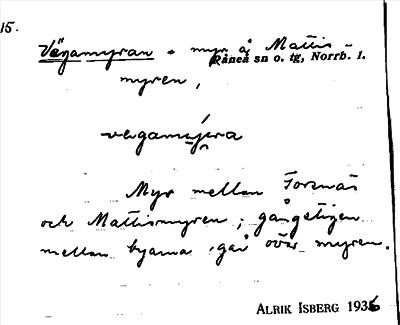 15.
Vägamyran = myr å Mattis-
Råneå sn o. tg, Norrb. l.
myren,
vegamyra
Myr mellan Forsnäs
och Mattismyren; gångstigen
mellan byarna går över myren.
ALRIK ISBERG 1936